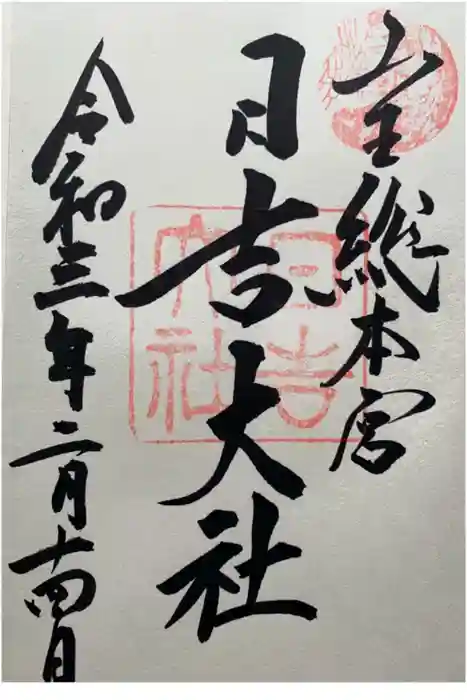 山王総本宮
日吉大社
令和三年二月十四日
日吉
大社